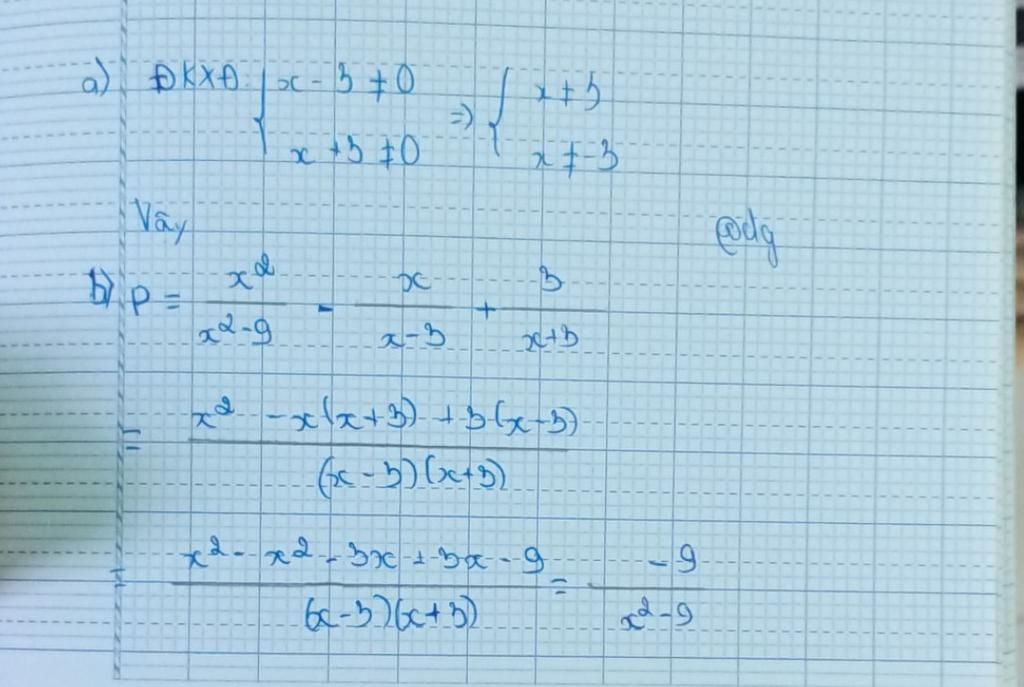 a) ĐKXĐ { x - 3 ≠ 0 => { x ≠ 3
x + 3 ≠ 0 x ≠ -3
Vây @dg
b) P = x²/(x²-9) - x/(x-3) + 3/(x+3)
= (x² - x(x+3) + 3(x-3))/((x-3)(x+3))
= (x² - x² - 3x + 3x - 9)/((x-3)(x+3)) = -9/(x²-9)